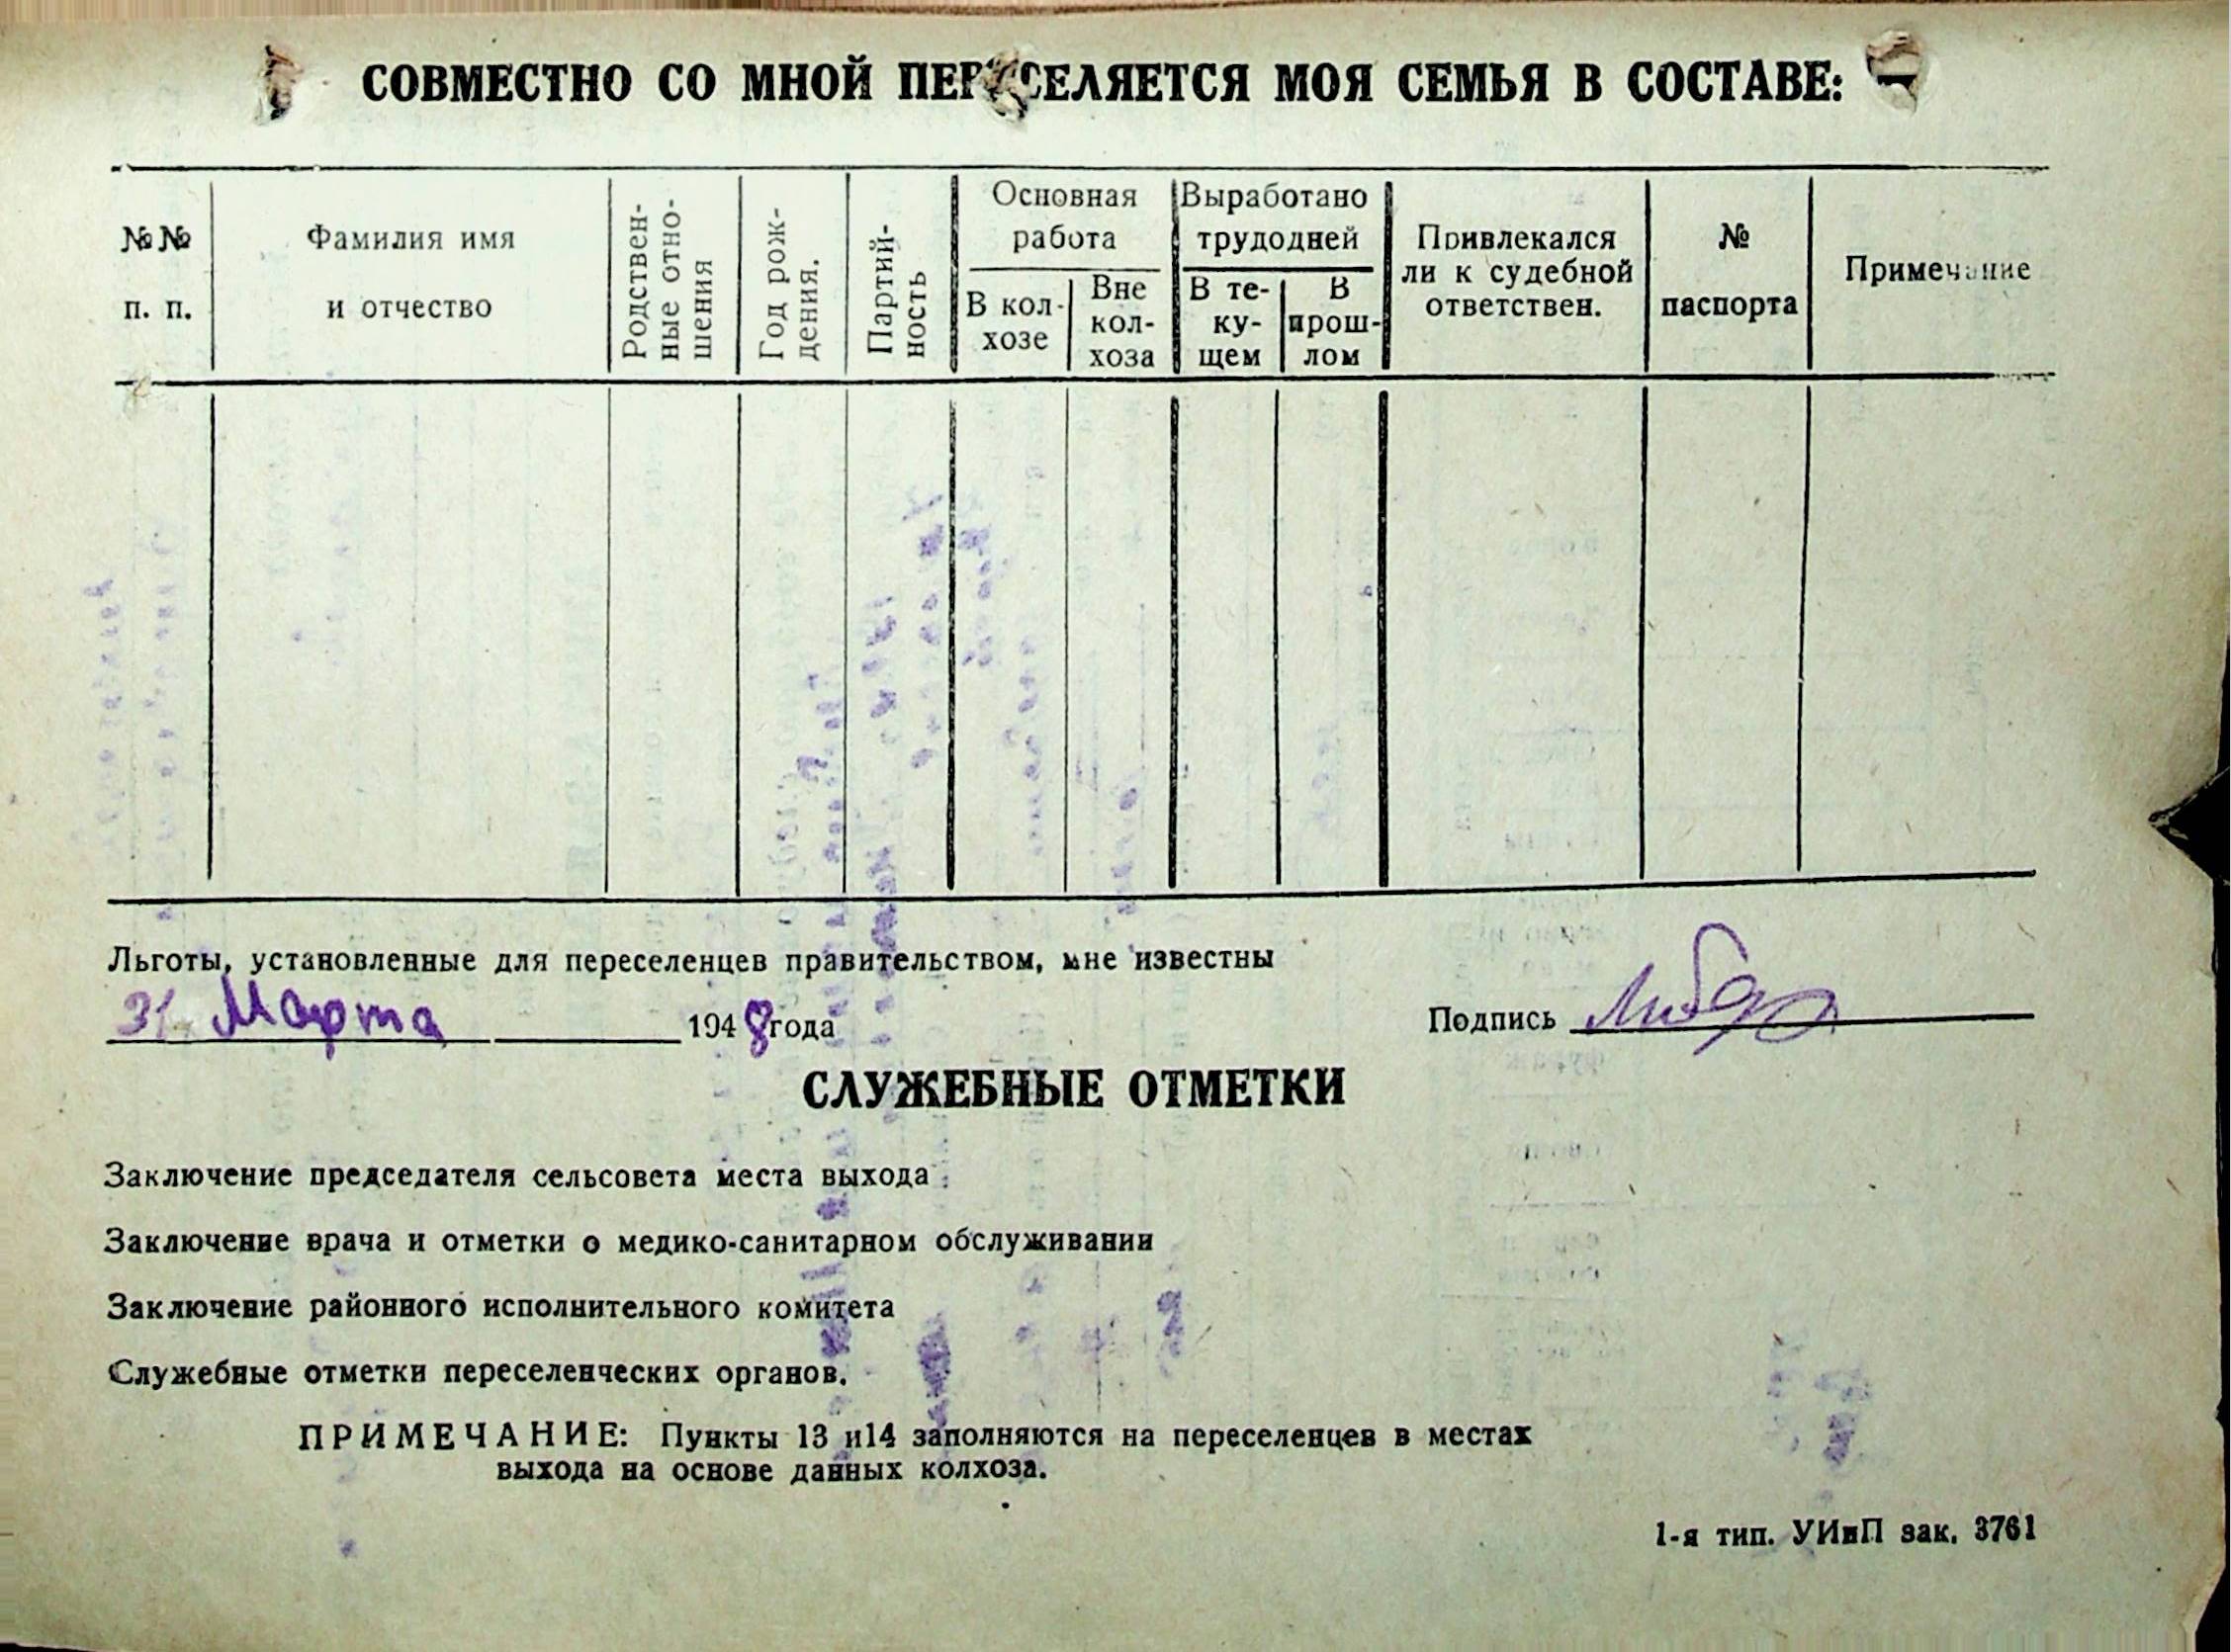 СОВМЕСТНО СО МНОЙ ПЕРЕСЕЛЯЕТСЯ МОЯ СЕМЬЯ В СОСТАВЕ:
№№ п. п.
Фамилия имя и отчество
Родствен-
ные отно-
шения
Год рож-
дения.
Партий-
ность
Основная
работа
В кол-
хозе
Вне
кол-
хоза
Выработано
трудодней
В те-
ку-
щем
В
прош-
лом
Привлекался
ли к судебной
ответствен.
№
паспорта
Примечание
Льготы, установленные для переселенцев правительством, мне известны
31 Марта 1948 года
Подпись
СЛУЖЕБНЫЕ ОТМЕТКИ
Заключение председателя сельсовета места выхода
Заключение врача и отметки о медико-санитарном обслуживании
Заключение районного исполнительного комитета
Служебные отметки переселенческих органов.
ПРИМЕЧАНИЕ: Пункты 13 и14 заполняются на переселенцев в местах
выхода на основе данных колхоза.
1-я тип. УИиП зак. 3761